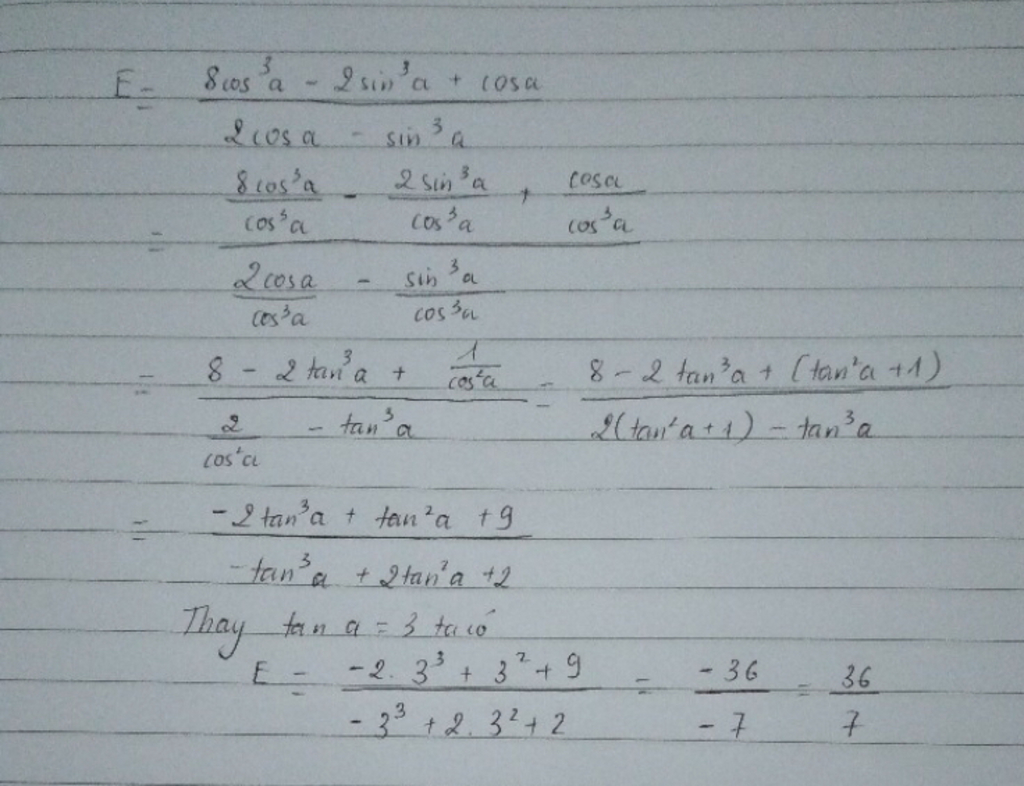 E = (8cos³a - 2sin³a + cosa) / (2cosa - sin³a)
= (8cos³a/cos³a - 2sin³a/cos³a + cosa/cos³a) / (2cosa/cos³a - sin³a/cos³a)
= (8 - 2tan³a + 1/cos²a) / (2/cos²a - tan³a) = (8 - 2tan³a + (tan²a + 1)) / (2(tan²a + 1) - tan³a)
= (-2tan³a + tan²a + 9) / (-tan³a + 2tan²a + 2)
Thay tan a = 3 ta có
E = (-2. 3³ + 3² + 9) / (-3³ + 2. 3² + 2) = -36 / -7 = 36 / 7